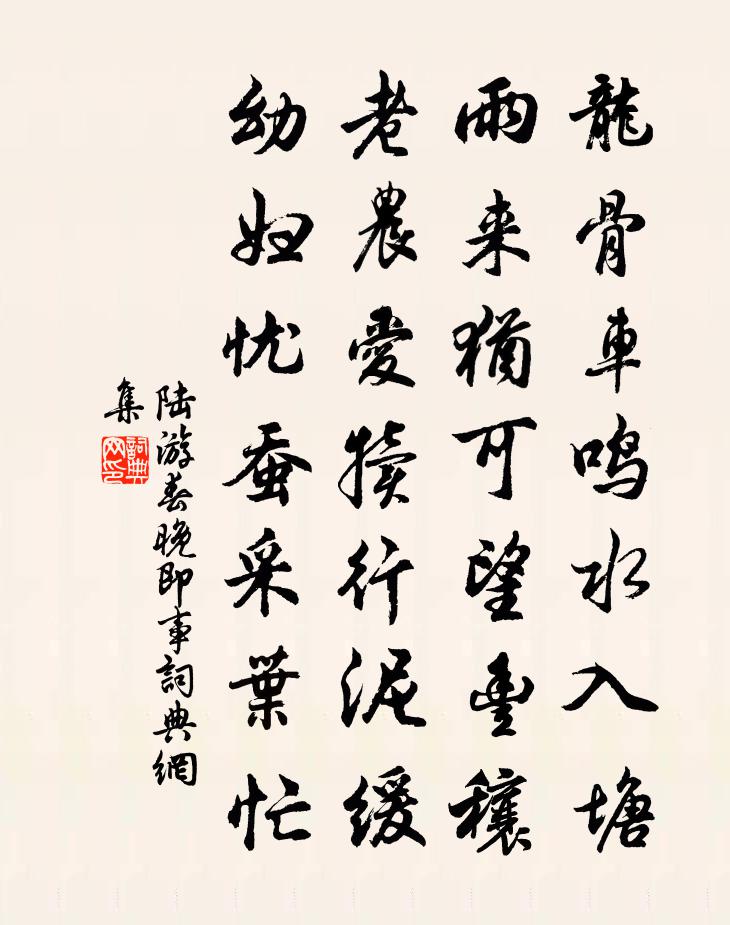 龍骨車鸣水入塘
雨来猶可望豐穰
老農愛犢行泥缓
幼妇忧蚕采葉忙
陆游春晚即事詞典網
集
詞典网印